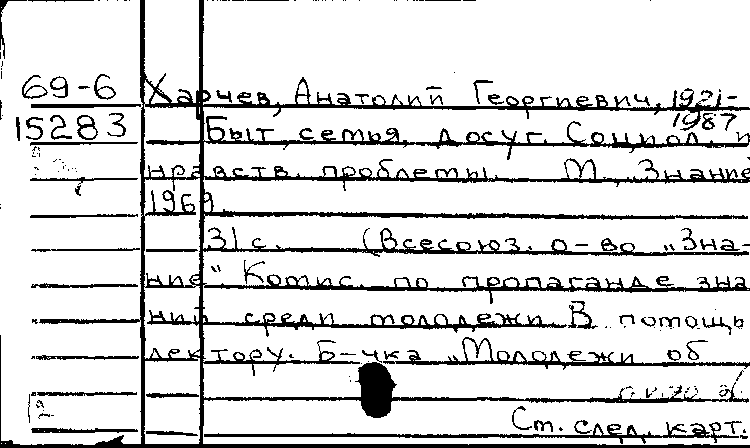 69-6
15283
Харчев, Анатолий Георгиевич, 1921-
1987
Быт, семья, досуг. Социол. и
нравств. проблемы. М., Знание
1969.
31 с. (Всесоюз. о-во „Зна-
ние" Комис. по пропаганде зна
ний среди молодежи В помощь
лектору. Б-чка „Молодежи об
См. след. карт.
2